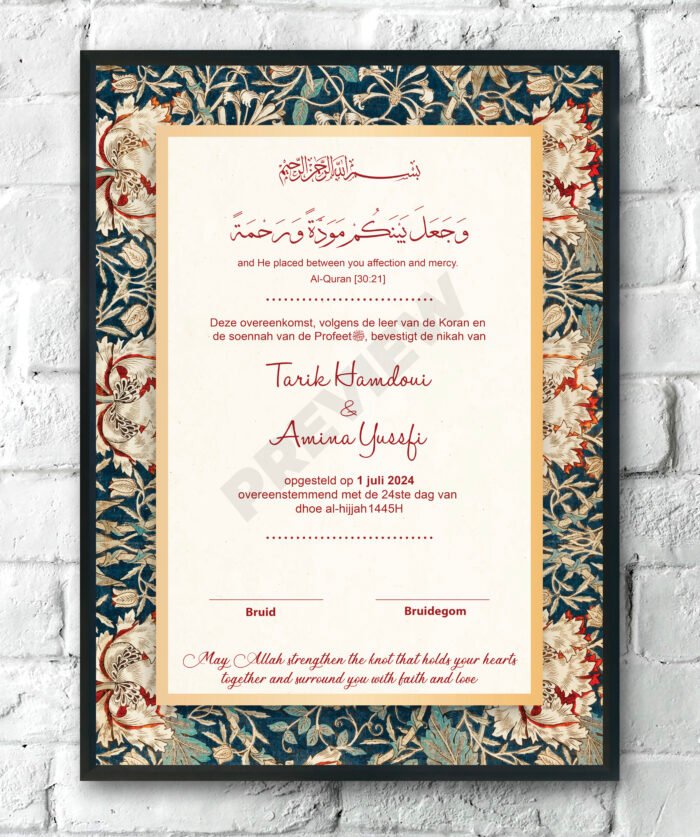 بسم الله الرحمن الرحيم
وَجَعَلَ بَيْنَكُمْ مَوَدَّةً وَرَحْمَةً
and He placed between you affection and mercy.
Al-Quran [30:21]
Deze overeenkomst, volgens de leer van de Koran en
de soennah van de Profeetﷺ, bevestigt de nikah van
Tarik Hamdoui
&
Amina Yussfi
opgesteld op 1 juli 2024
overeenstemmend met de 24ste dag van
dhoe al-hijjah1445H
Bruid
Bruidegom
May Allah strengthen the knot that holds your hearts
together and surround you with faith and love
PREVIEW